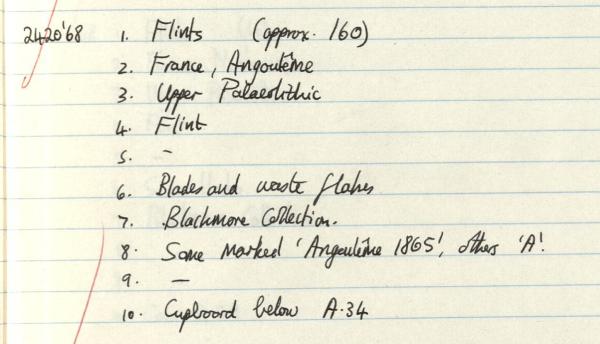 2420'68 1. Flints (approx. 160)
2. France, Angoulême
3. Upper Palaeolithic
4. Flint
5. –
6. Blades and waste flakes
7. Blackmore Collection.
8. Some marked 'Angoulême 1865', others 'A'.
9. —
10. Cupboard below A.34